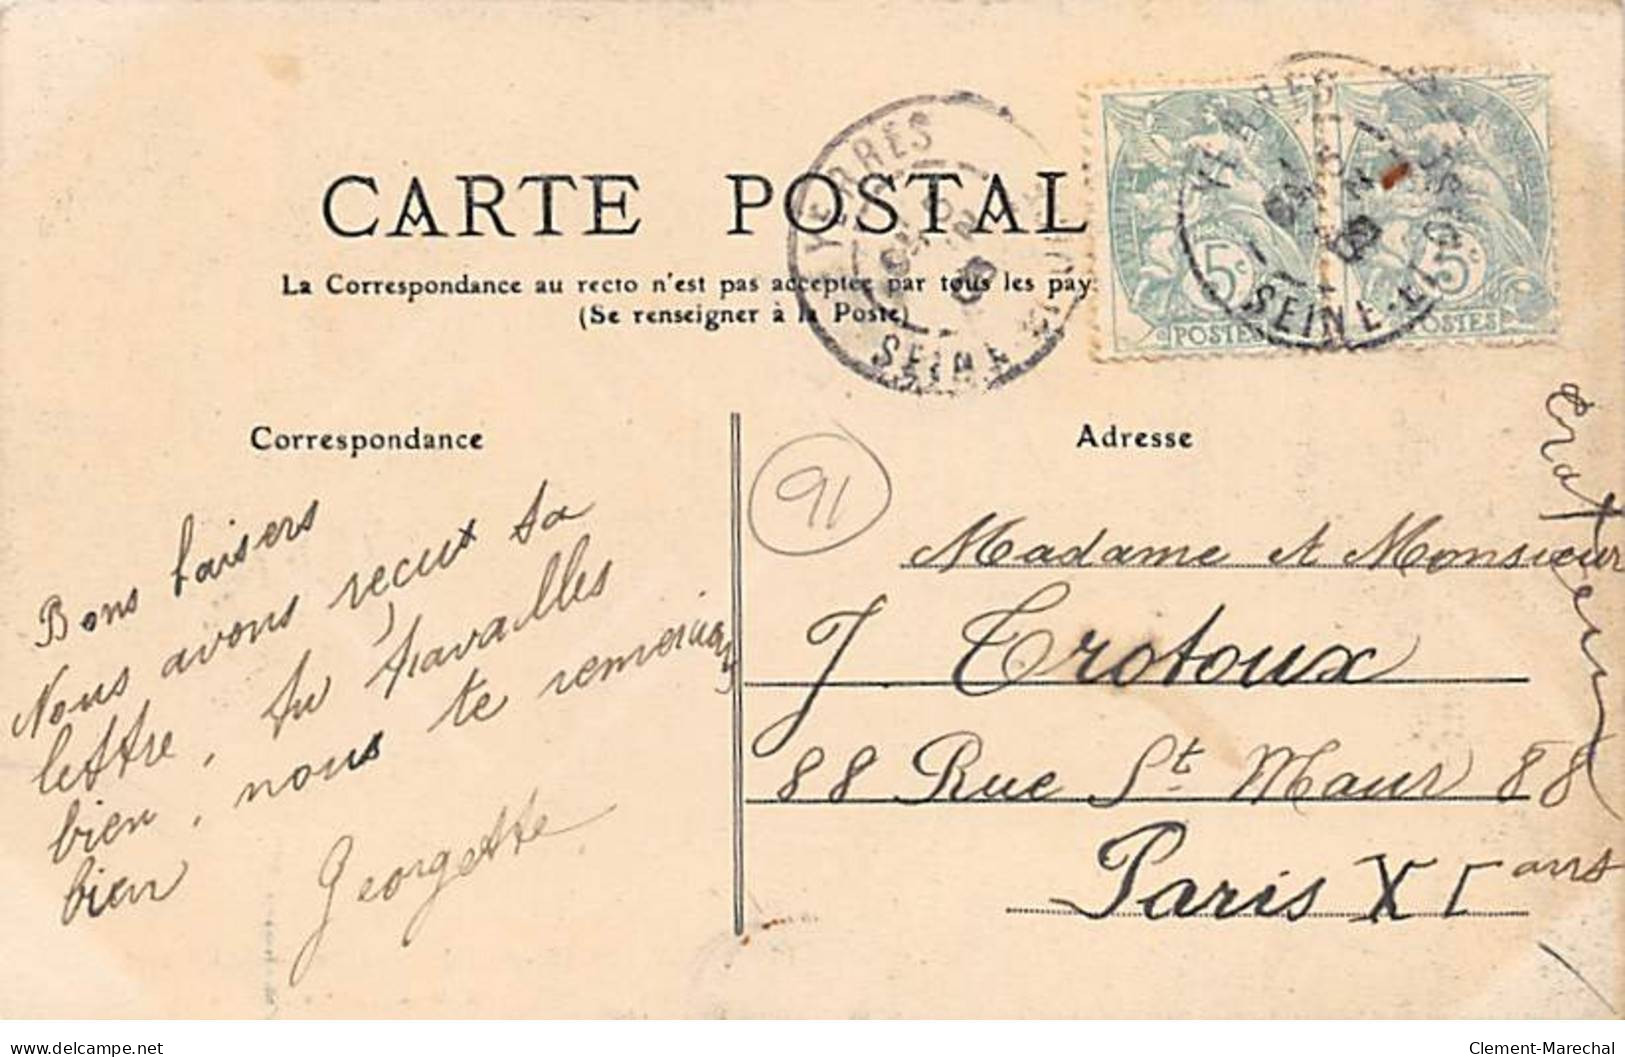 CARTE POSTAL
La Correspondance au recto n'est pas acceptée par tous les pay
(Se renseigner à la Poste)
YERRES
SEINE
YERRES
SEINE-
5c
POSTES
5c
POSTES
Correspondance
Adresse
91
Bons baisers
Nous avons reçux ta
lettre, tu travailles
bien, nous te remercions
bien
Georgette
Madame et Monsieur
J. Crotoux
88 Rue St Maur 88
Paris XI
delcampe.net
Clement-Marechal